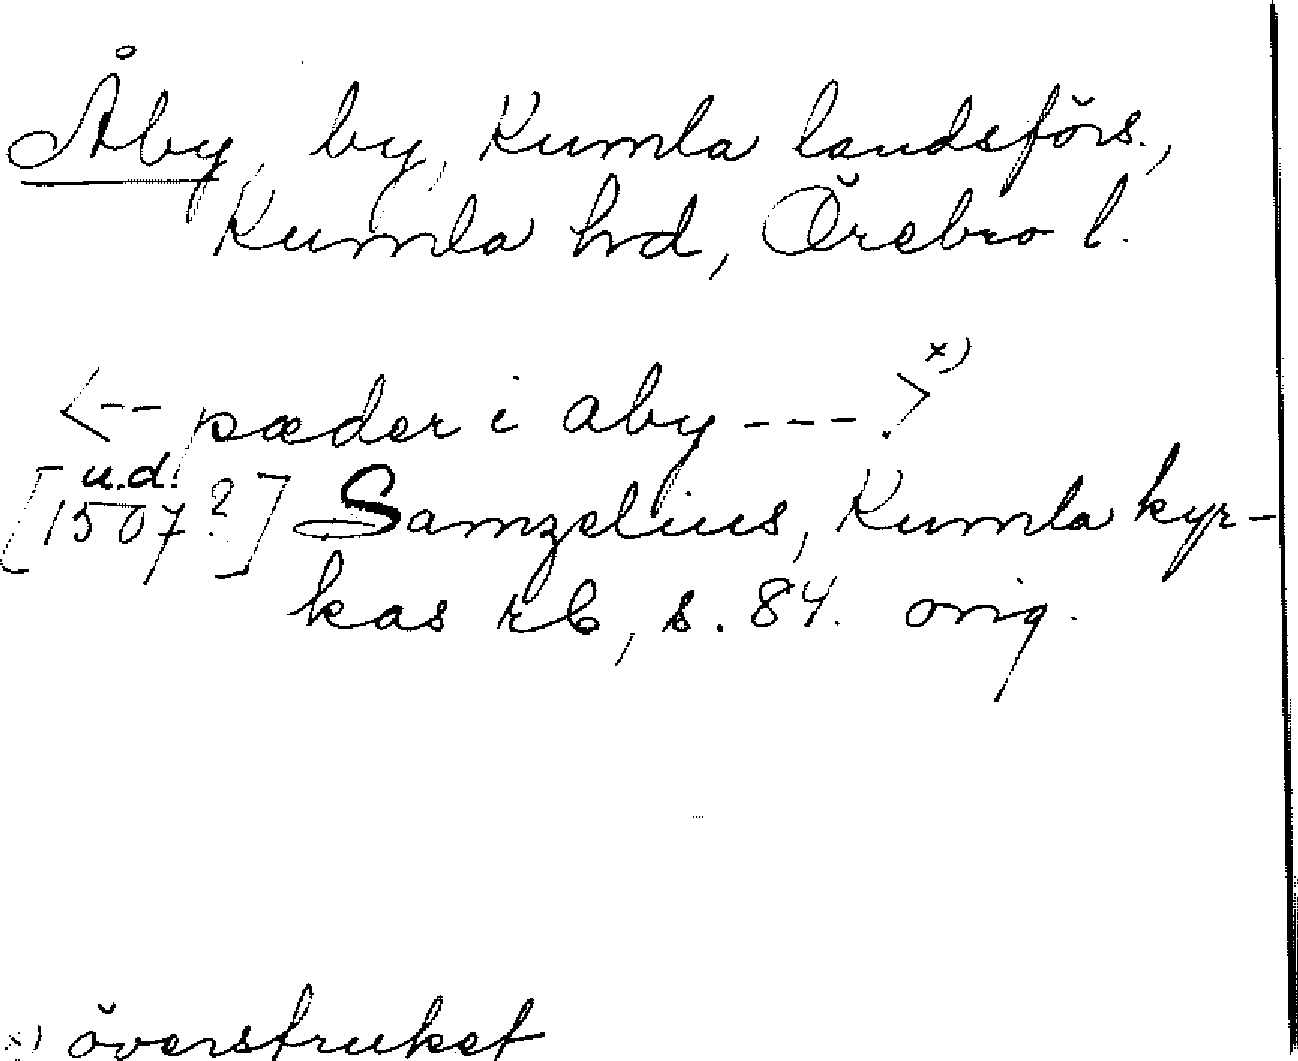 Åby, by, Kumla landsförs.,
Kumla hd, Örebro l.
<-- pæder i aby ---.> x)
u.d.
[1507?] Samzelius, Kumla kyr-
kas rb, s. 84. orig.
x) överstruket